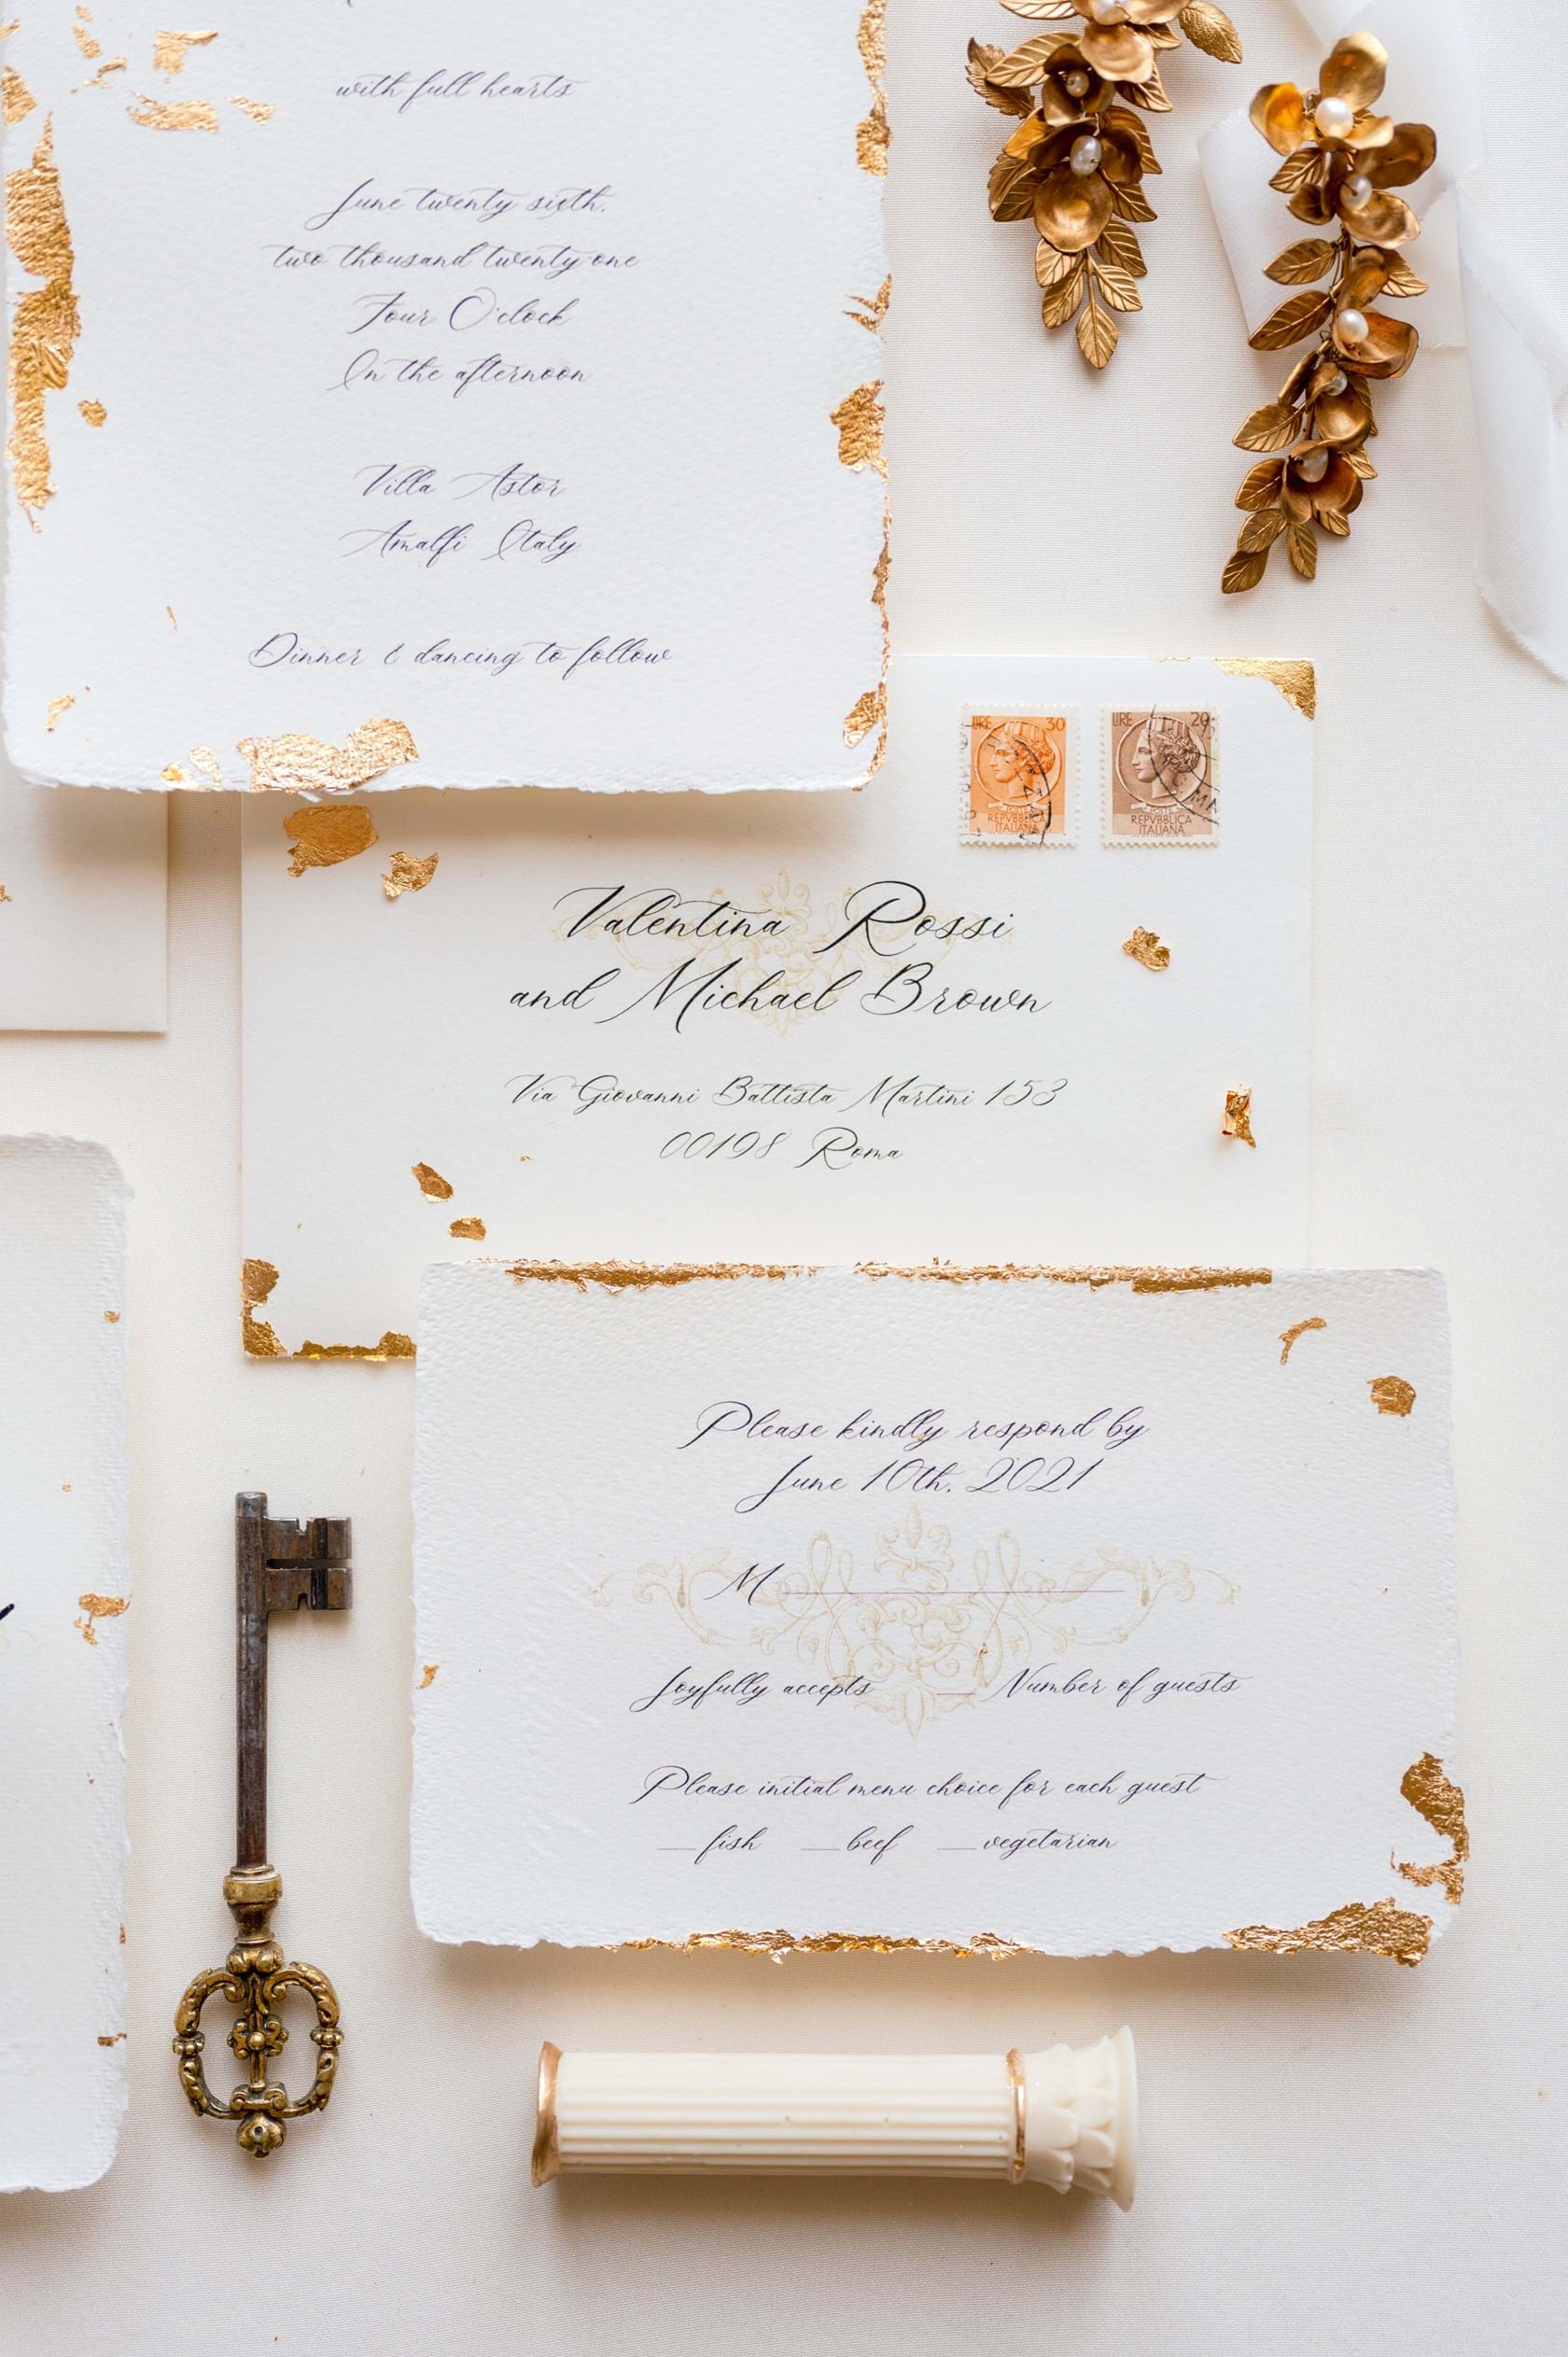 with full hearts
June twenty sixth,
two thousand twenty-one
Four O'clock
In the afternoon
Villa Astor
Amalfi Italy
Dinner & dancing to follow
LIRE 30
REPVBBLICA
ITALIANA
LIRE 20
ROMA
REPVBBLICA
ITALIANA
Valentina Rossi
and Michael Brown
Via Giovanni Battista Martini 153
00198 Roma
Please kindly respond by
June 10th, 2021
M
Joyfully accepts Number of guests
Please initial menu choice for each guest
fish beef vegetarian